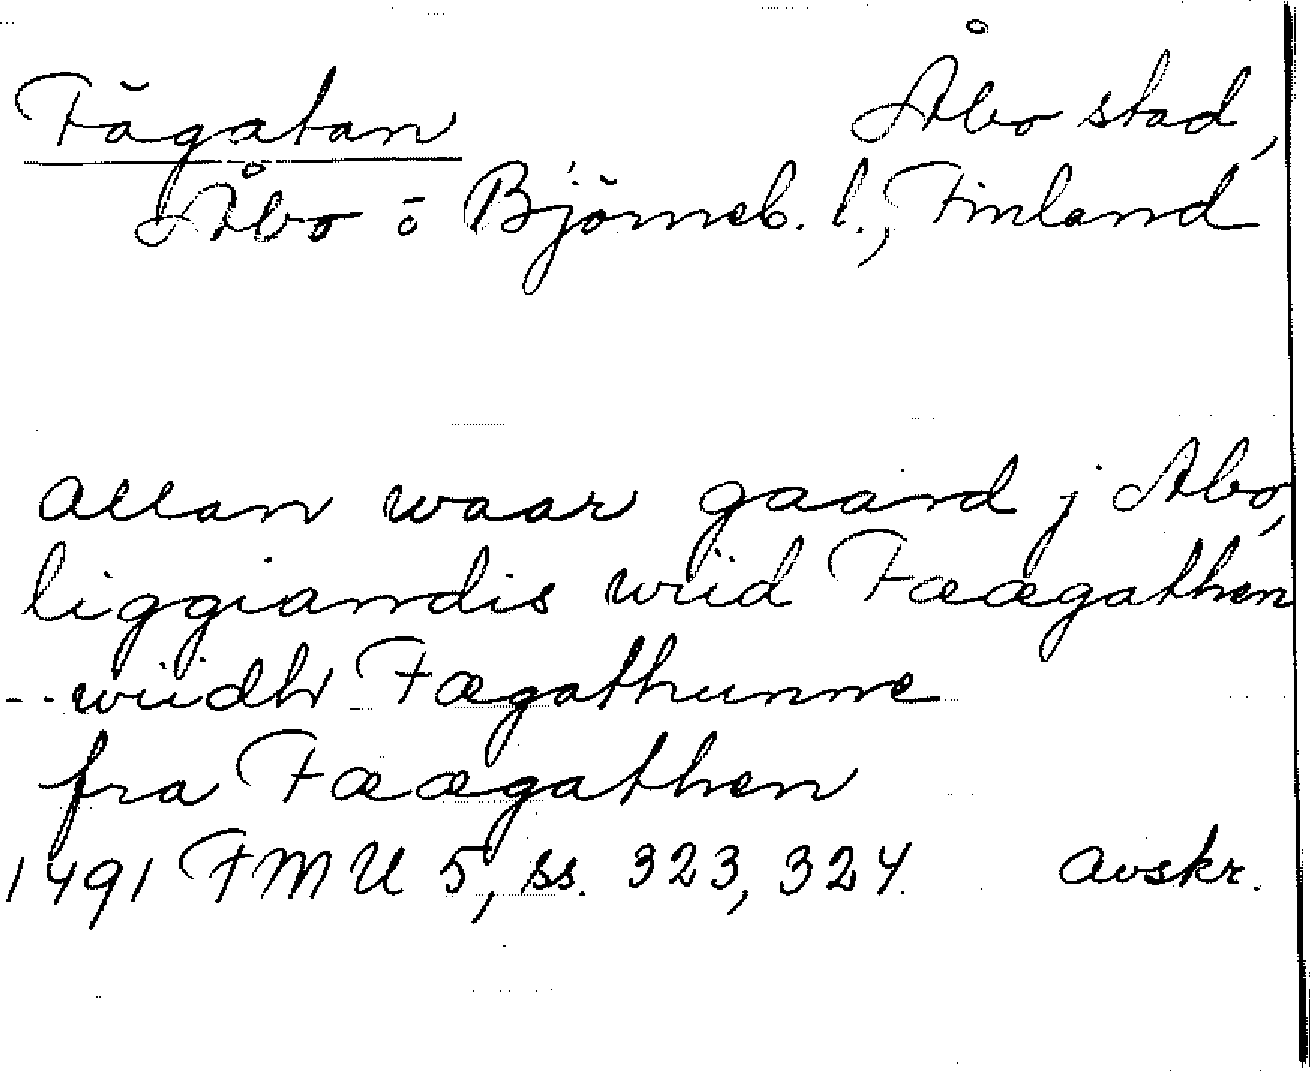 Fägatan Åbo stad,
Åbo o Björneb. l., Finland
allan waar gaard j Abo,
liggiandis wiid Fææægathen
-- wiidh Fægathunne
fra Fææægathen
1491 FMU 5, ss. 323, 324. avskr.